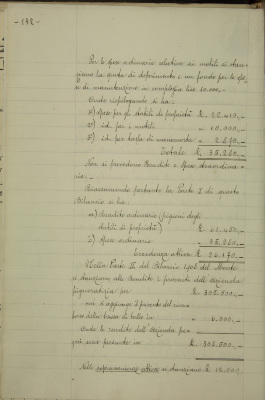 - 192 -
Per le spese ordinarie relative ai mobili si stan-
ziano la quota di deperimento e un fondo per le spe-
se di manutenzione in complesso lire 10.000.-
Onde riepilogando si ha:
1°) Spese per gli stabili di proprietà £. 22.410,-
2°) id. per i mobili " 10.000,-
3°) id. per tassa di manomorta "
Totale £. 35.260.-
Non si prevedono Rendite e Spese straordina-
rie.-
Riassumendo pertanto la Parte I di questo
Bilancio si ha:
1) Rendite ordinarie (pigioni degli
stabili di proprietà) £.
2) Spese ordinarie " 35.260.-
Eccedenza attiva £.
Nella Parte II del Bilancio 1906 del Monte
si stanziano alle Rendite i proventi dell'azienda
pignoratizia per £. 302.500,-
cui si aggiunge il provento del rim-
borso della tassa di bollo in " 6.000.-
Onde le rendite dell'Azienda pe-
gni sono previste in £.
Nelle sopravvenienze attive si stanziano £.